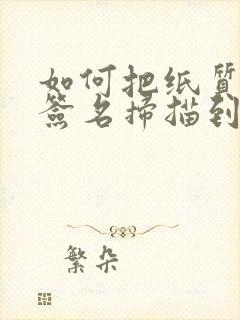 如何把纸质
签名扫描到
繁朵